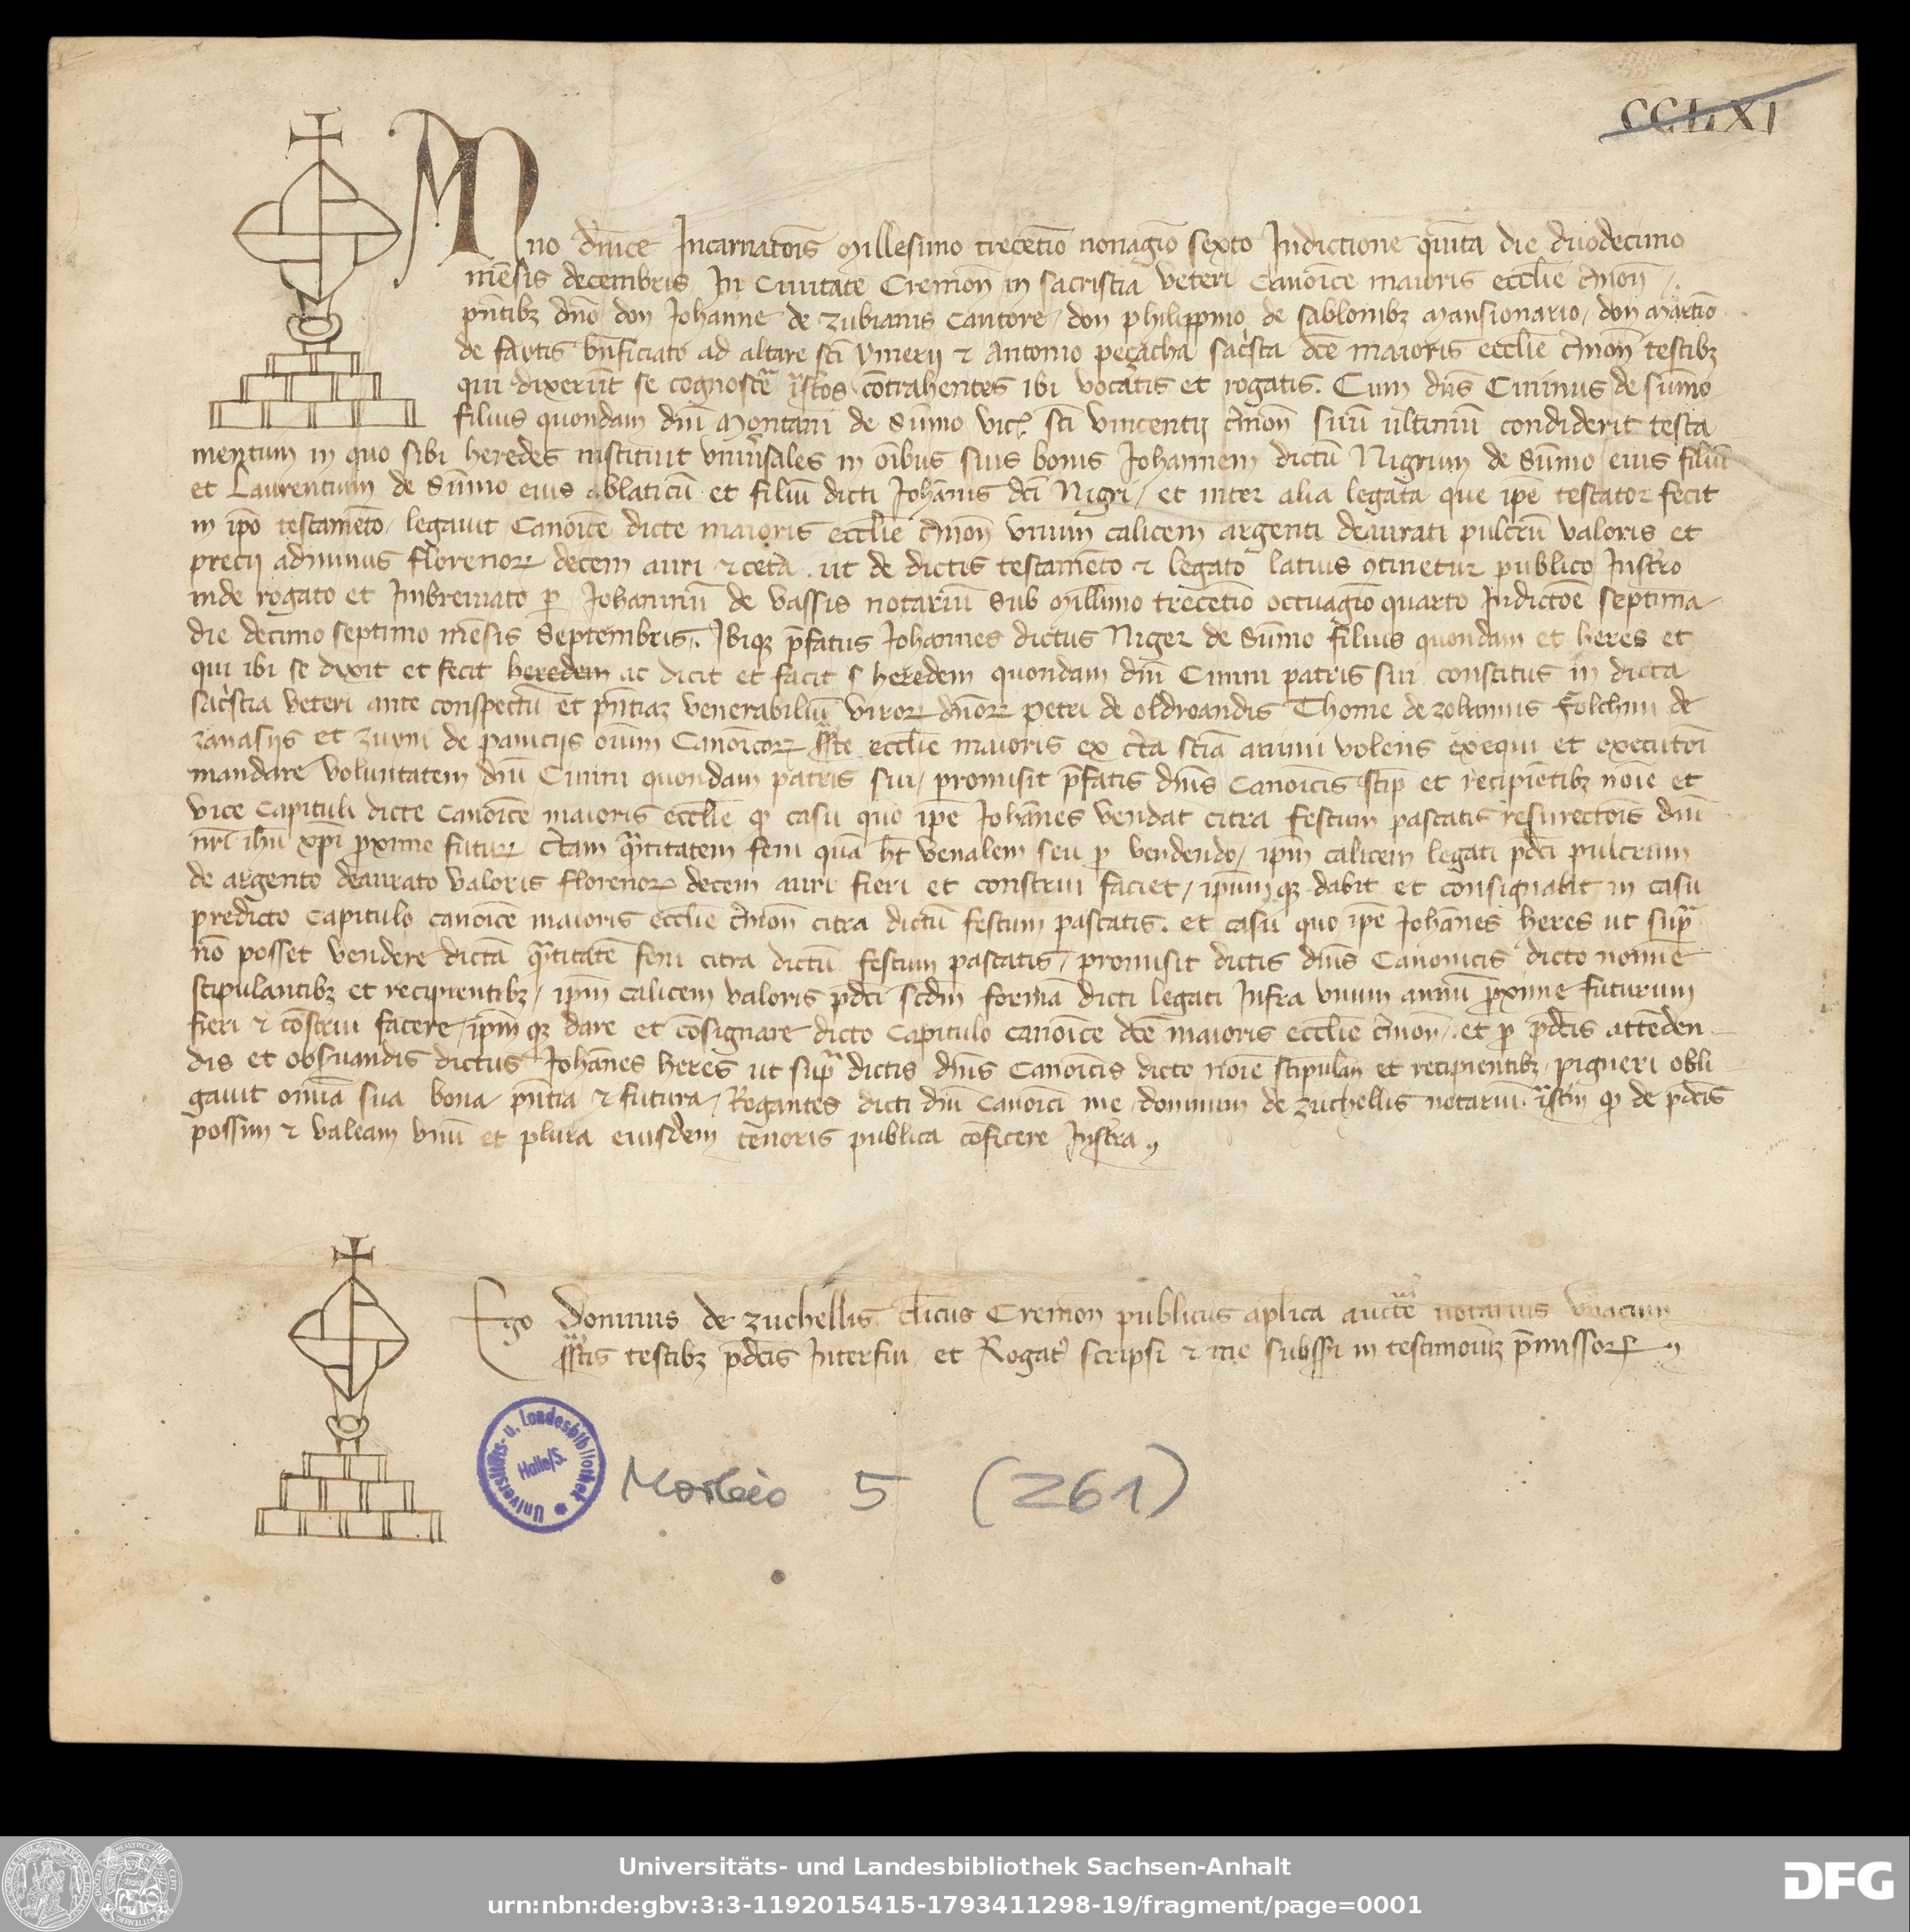 CCLXI
Anno dn̄ice Incarnatōis Millesimo trecētīo nonagīo sexto Indictione quīta die duodecimo
mēsis decembris In Ciuitate Cremoñ in sacristia veteri Canoīce maioris eccl̄ie cr̄moñ /.
pn̄tibꝫ dn̄o don Johanne de zubianis Cantore / don philippino de sablonibꝫ Mansionario / don Martīo
de fartis bn̄ficiato ad altare sc̄i ymerij ⁊ Antonio peçacha sacsta dc̄e maioris eccl̄ie cr̄moñ testibꝫ
qui dixerūt se cognosc̄e īsc̄tos cōtrahentes ibi vocatis et rogatis. Cum dn̄s Cininus de sūmo
filius quondam dn̄i Montani de Sūmo vic̄ sc̄i vincentij cr̄moñ suū ultimū condiderit testa
mentum in quo sibi heredes instituit vniūsales in oībus suis bonis Johannem dictū Nigrum de Sūmo eius filiū
et Laurentium de Sūmo eius ablaticū et filiū dicti Johānis dc̄i Nigri / et inter alia legata que ip̄e testator fecit
in ip̄o testamēto / legauit Canoīce dicte maioris eccl̄ie cr̄moñ vnum calicem argenti deaurati pulcrū valoris et
precij adminus florenoꝝ decem auri ⁊ cetā . ut de dictis testamēto ⁊ legato latius ꝯtinetur publico Instr̄o
inde rogato et Imbreuiato ꝑ Johanninū de vassis notariū Sub Mill̄imo trecētīo octuagīo quarto Indictōe septima
die decimo septimo mēsis Septembris. Ibiqꝫ p̄fatus Johannes dictus Niger de Sūmo filius quondam et heres et
qui ibi se dixit et fecit heredem ac dicit et facit s̄ heredem quondam dn̄i Cinini patris sui constitus in dicta
sac̄stia veteri ante conspectū et pn̄tiaꝫ venerabiliū viroꝝ dn̄oꝝ petri de oldroandis Thome de zohannis Folchini de
zanasijs et zuyni de panicijs oīum Canoīcoꝝ sst̄e eccl̄ie maioris ex cr̄ta sciā animi volens exequi et executōi
mandare voluntatem dn̄i Cinini quondam patris sui / promisit p̄fatis dn̄is Canoīcis stip̄ et recipiētibꝫ noīe et
vice Capituli dicte Canoīce maioris eccl̄ie ꝙ casu quo ip̄e Johānes vendat citra festum pascatis resurectōis dn̄i
nr̄i ih̄u xp̄i proxime futuꝝ cr̄tam qͣntitatem feni quā h̄t venalem seu ꝑ vendendo / ip̄m calicem legati p̄dc̄i pulcrum
de argento deaurato valoris florenoꝝ decem auri fieri et construi faciet / ip̄umqꝫ dabit et consignabit in casu
predicto Capitulo canoīce maioris eccl̄ie cr̄moñ citra dictū festum pascatis. et casu quo ip̄e Johānes heres ut supͣ
nō posset vendere dictā qͣntitatē feni citra dictū festum pascatis / promisit dictis dn̄is Canonicis dicto nomine
stipulantibꝫ et recipientibꝫ / ip̄m calicem valoris p̄dc̄i sc̄dm formā dicti legati Infra vnum annū proxime futurum
fieri ⁊ cōstrui facere / ip̄mqꝫ dare et cōsignare dicto Capitulo canoīce dc̄e maioris eccl̄ie cr̄moñ . et ꝑ p̄dc̄is attēden
dis et obs̄uandis dictus Johānes heres ut supͣ dictis dn̄is Canoīcis dicto noīe stipulañ et recipientibꝫ / pigneri obli
gauit omīa sua bona pn̄tia ⁊ futura / Rogantes dicti dn̄i Canoīci me dominum de zuchellis notariū īsc̄m ꝙ de p̄dc̄is
possim ⁊ valeam vnū et plura eiusdem tenoris publica cōficere Instr̄a
Ego Dominus de zuchellis cl̄icus Cremoñ publicus ap̄lica auct̄te notarius vnacum
ssc̄tis testibꝫ p̄dc̄is Interfui et Rogatꝰ scripsi ⁊ me subss̄i in testimoīuꝫ p̄missoꝝ
Universitäts- u. Landesbibliothek
Halle/S.
Morbio 5 (261)
Universitäts- und Landesbibliothek Sachsen-Anhalt
urn:nbn:de:gbv:3:3-1192015415-1793411298-19/fragment/page=0001
DFG